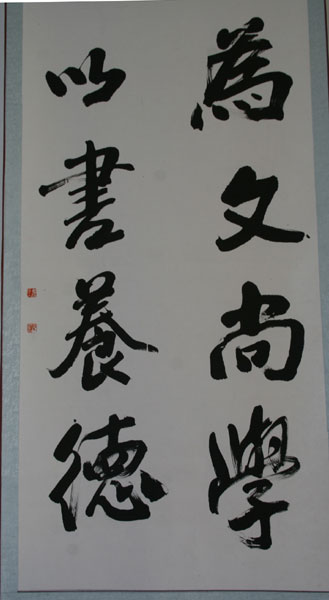 為文尚學
以書養德